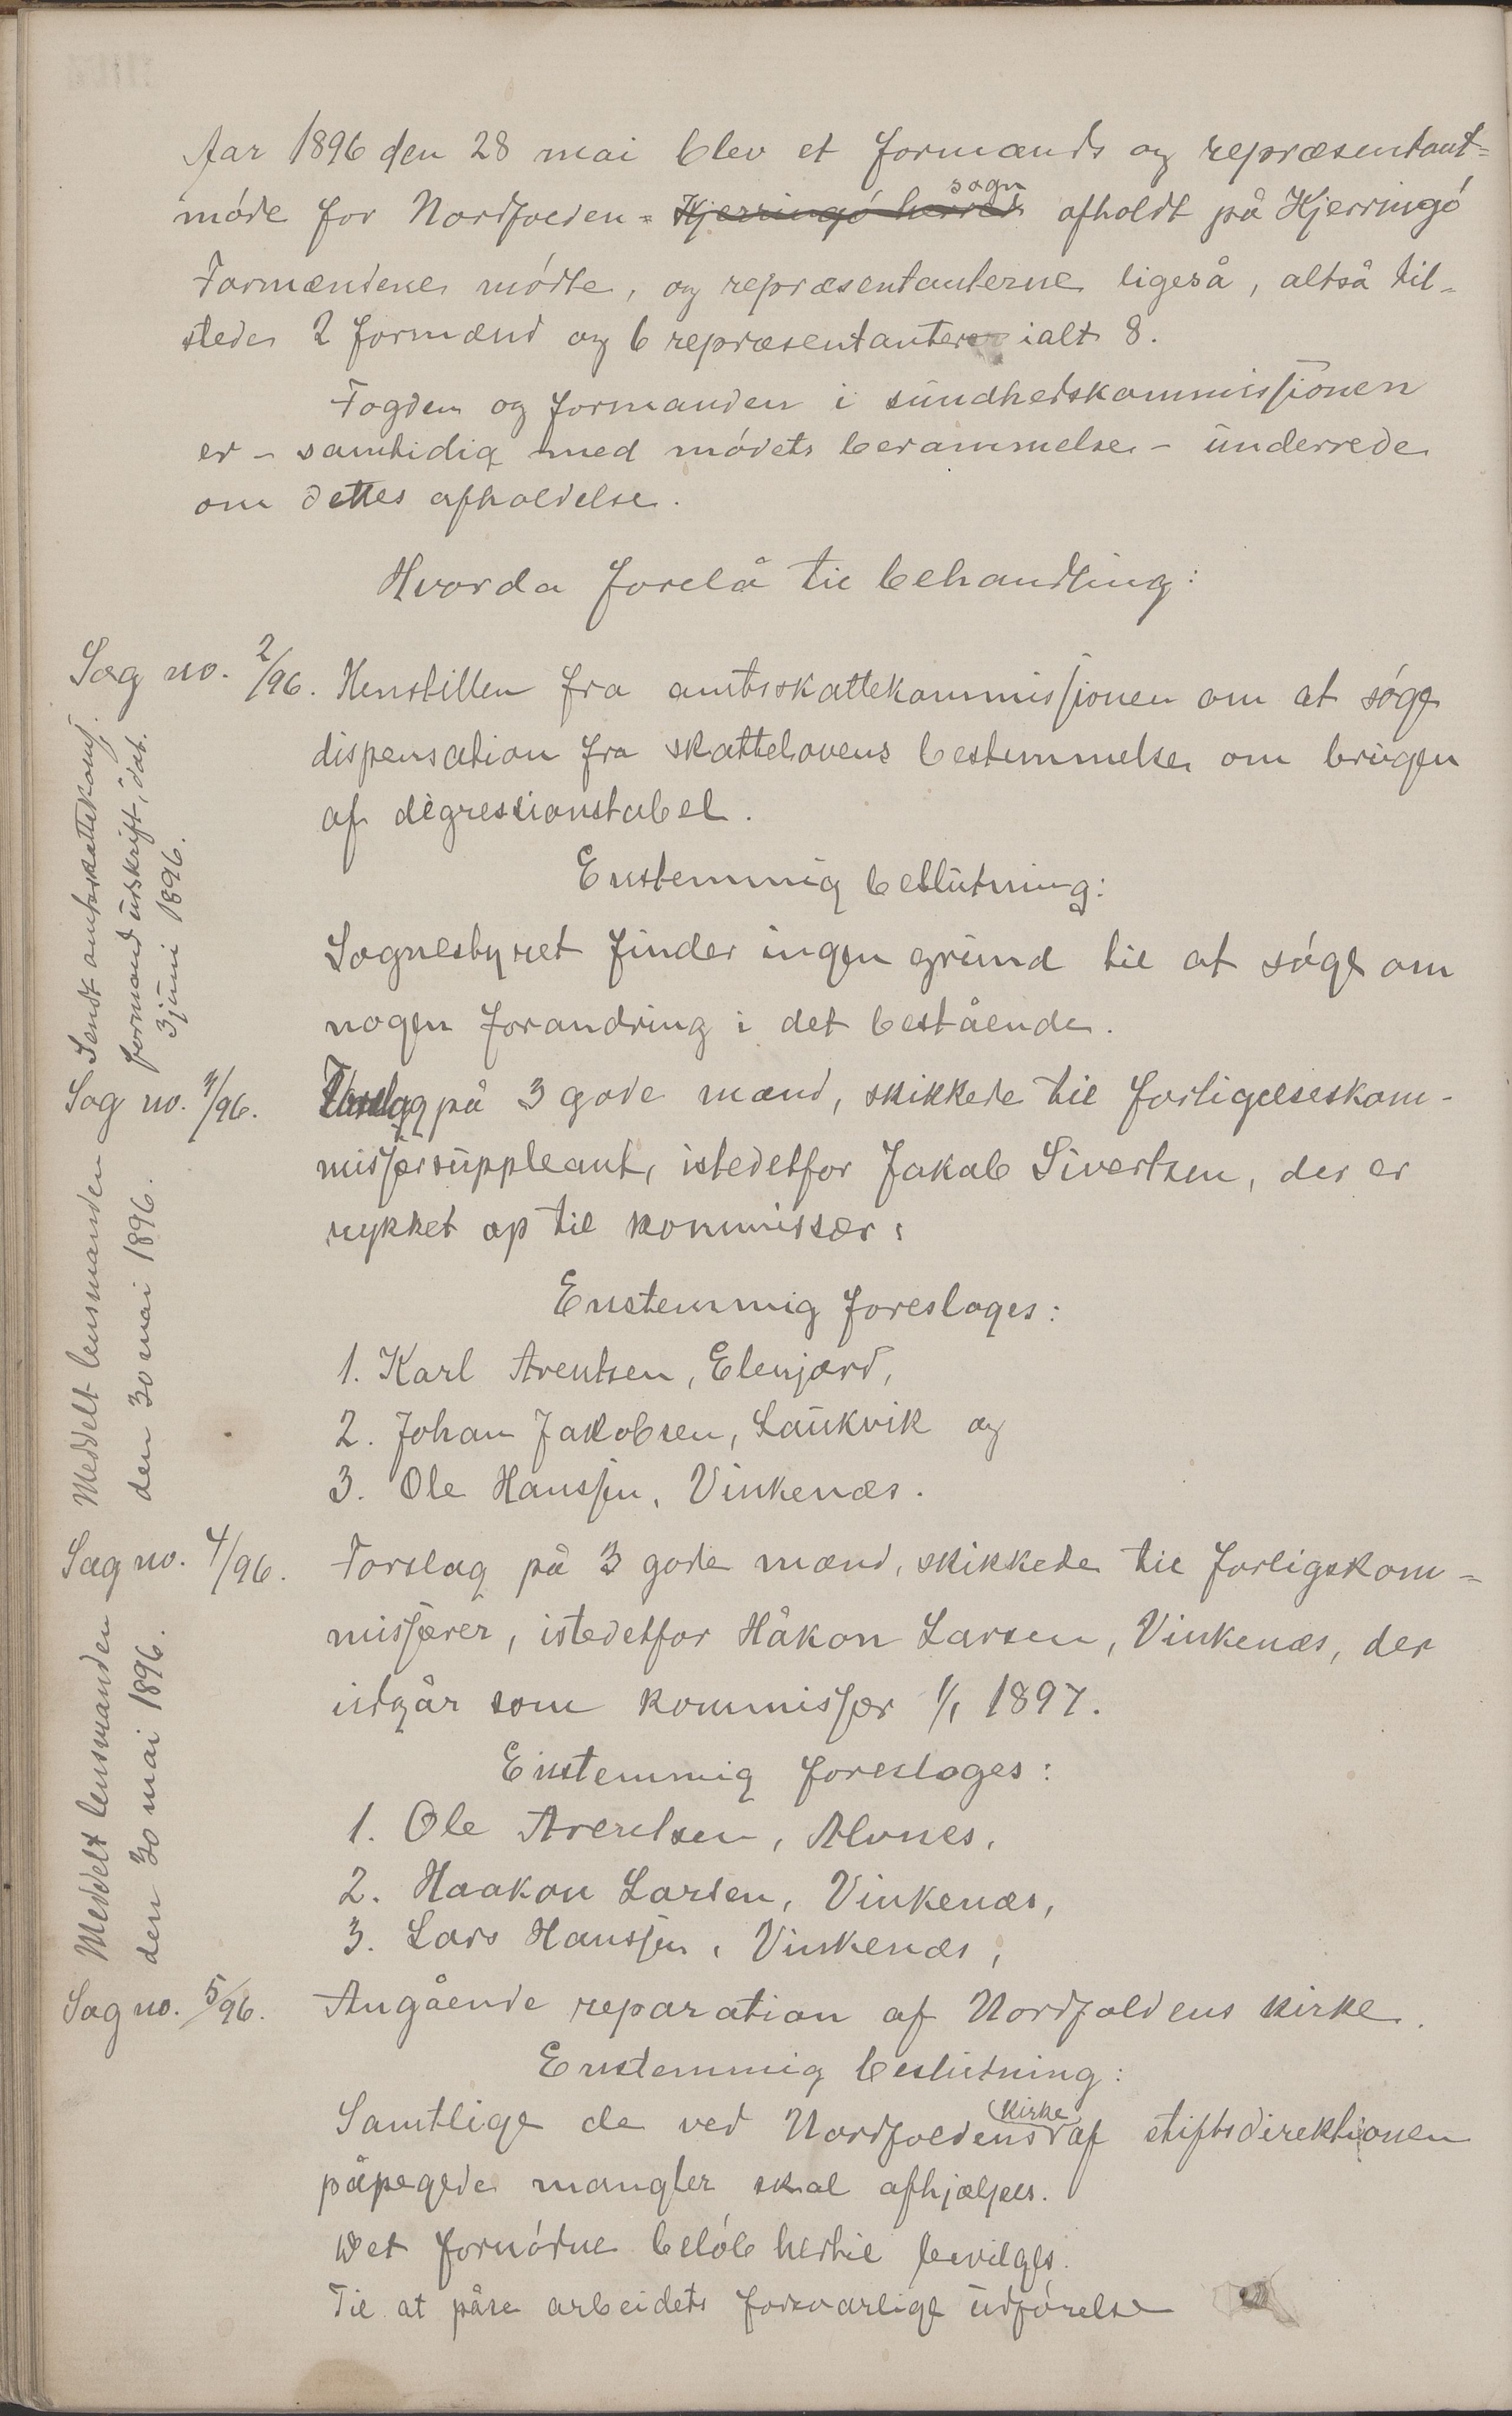 Aar 1896 den 28 mai blev et formænds og repræsentant=
møde for Nordfolden = Hjerringø herreds sogn afholdt på Hjerringø
Formændene mødte, og repræsentanterne ligeså, altså til-
stede 2 formænd og 6 repræsentanter ialt 8.
Fogden og formanden i sundhedskommissionen
er - samtidig med mødets berammelse - underrede
om dettes afholdelse.
Hvorda forelå til behandling:
Sag no. 2/96. Henstillen fra amtsskattekommissionen om at søge
dispensation fra skattelovens bestemmelse om brugen
af digressionstabel.
Enstemmig beslutning:
Sognestyret finder ingen grund til at søge om
nogen forandring i det bestående.
Sendt amtsskattekomj.
formand udskrift, dat.
3 juni 1896.
Sag no. 3/96. Forslag på 3 gode mænd, skikkede til forligelseskom-
missærsuppleant, istedetfor Jakob Sivertsen, der er
rykket op til kommissær:
Enstemmig foreslages:
1. Karl Arentsen, Elenjord,
2. Johan Jakobsen, Laukvik og
3. Ole Hanssen, Vinkenæs.
Meddelt lensmanden
den 30 mai 1896.
Sag no. 4/96. Forslag på 3 gode mænd, skikkede til forligskom-
missærer, istedetfor Håkon Larsen, Vinkenæs, der
udgår som kommissær 1/1 1897.
Enstemmig foreslages:
1. Ole Arentsen, Alvnes,
2. Haakon Larsen, Vinkenæs,
3. Lars Hanssen, Vinkenæs,
Meddelt lensmanden
den 30 mai 1896.
Sag no. 5/96. Angående reparation af Nordfoldens kirke.
Enstemmig beslutning:
Samtlige de ved Nordfoldens kirke af stiftsdirektionen
påpegede mangler skal afhjælpes.
Det fornødne beløb hertil bevilges.
Til at påse arbeidets forsvarlige udførelse